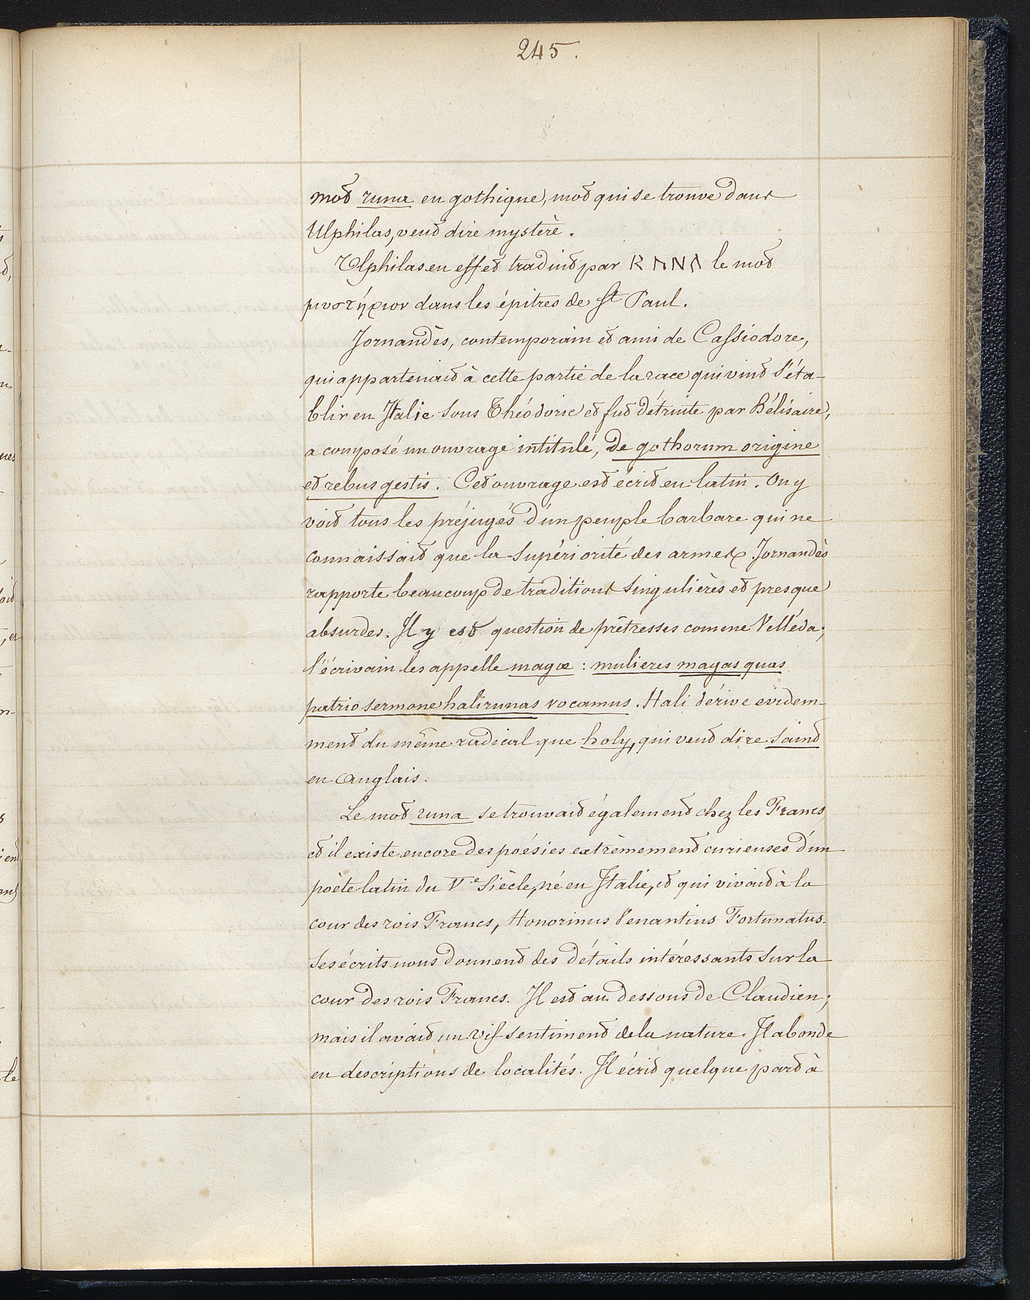 245.
mot runa en gothique, mot qui se trouve dans
Ulphilas, veut dire mystère.
Ulphilas en effet traduit par RᚢNᚨ le mot
μυστήριον dans les épitres de St Paul.
Jornandès, contemporain et ami de Cassiodore,
qui appartenait à cette partie de la race qui vint s'éta-
blir en Italie sous Théodoric et fut détruite par Bélisaire,
a composé un ouvrage intitulé, De gothorum origine
et rebus gestis. Cet ouvrage est écrit en latin. On y
voit tous les préjugés d'un peuple barbare qui ne
connaissait que la supériorité des armes. Jornandès
rapporte beaucoup de traditions singulières et presque
absurdes. Il y est question de prêtresses comme Velléda;
l'écrivain les appelle magæ : mulieres magas quas
patrio sermone halirunas vocamus. Hali dérive évidem-
ment du même radical que holy, qui veut dire saint
en Anglais.
Le mot runa se trouvait également chez les Francs
et il existe encore des poésies extrèmement curieuses d'un
poète latin du Ve Siècle, né en Italie, et qui vivait à la
cour des rois Francs, Honorinus Venantius Fortunatus.
Ses écrits nous donnent des détails intéressants sur la
cour des rois Francs. Il est au dessous de Claudien;
mais il avait un vif sentiment de la nature. Il abonde
en descriptions de localités. Il écrit quelque part à